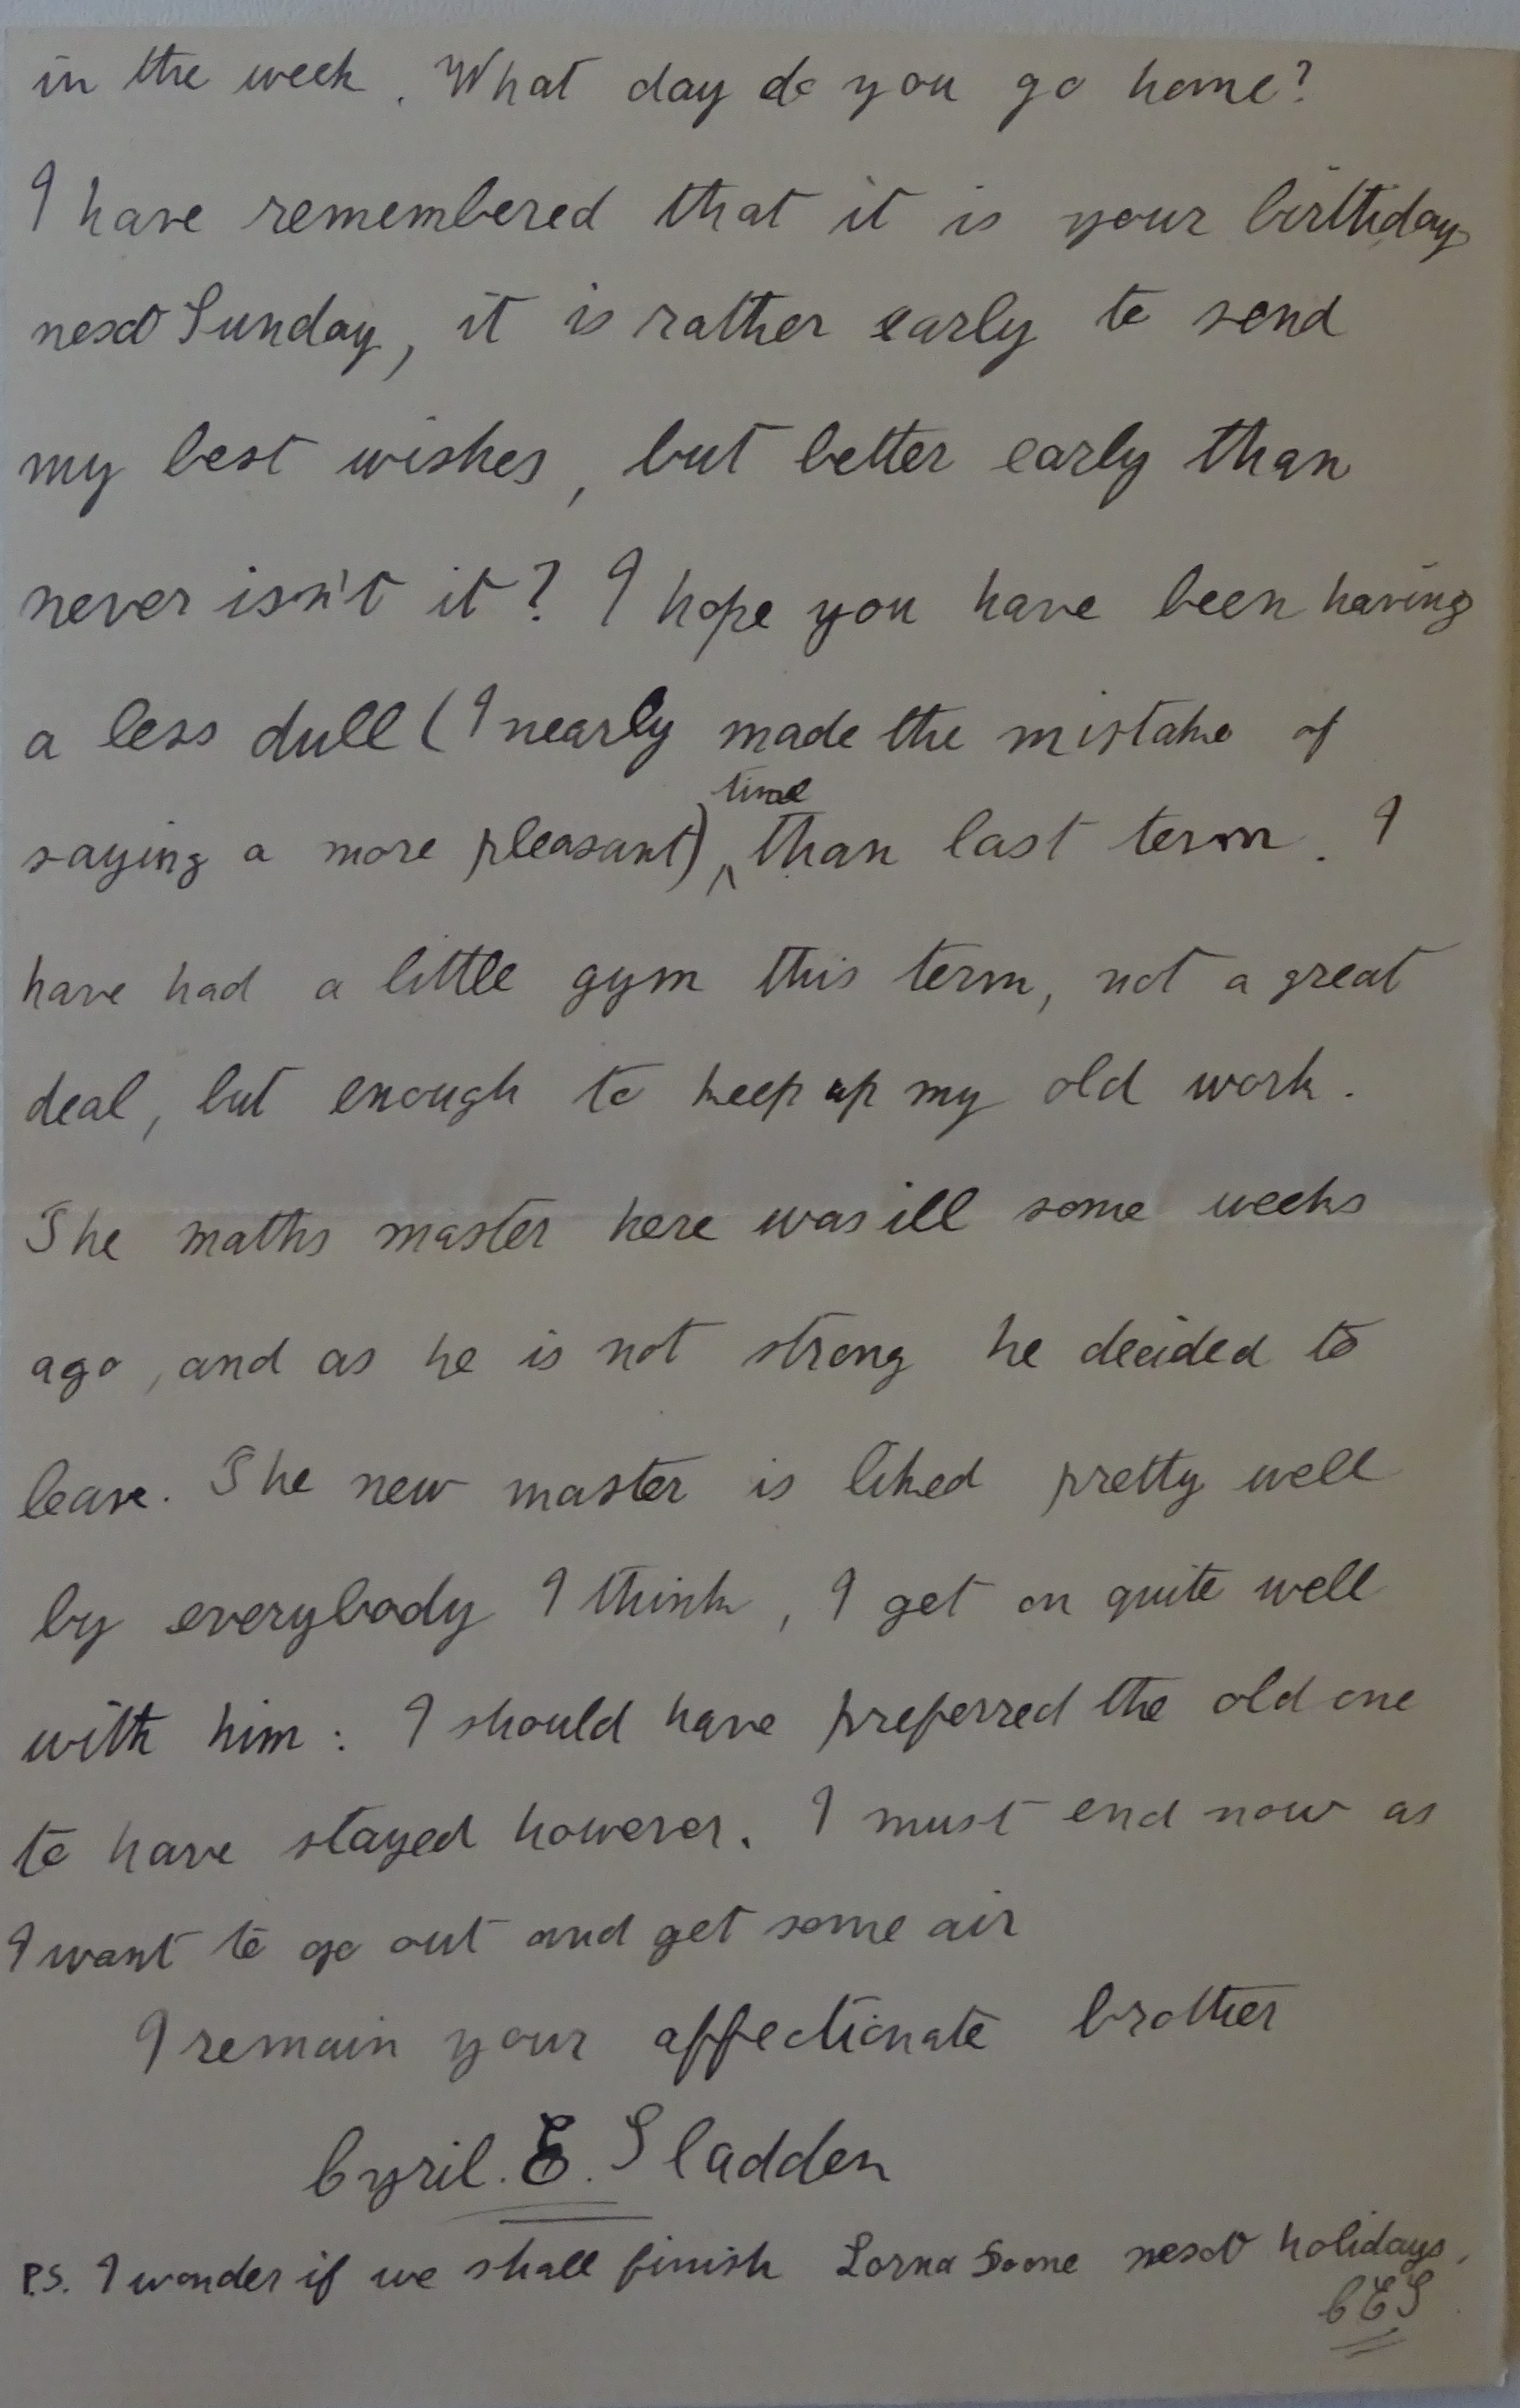 in the week. What day do you go home?
I have remembered that it is your birthday
next Sunday, it is rather early to send
my best wishes, but better early than
never isn't it? I hope you have been having
a less dull (I nearly made the mistake of
time
saying a more pleasant) ^ than last term. I
have had a little gym this term, not a great
deal, but enough to keep up my old work.
The maths master here was ill some weeks
ago, and as he is not strong he decided to
leave. The new master is liked pretty well
by everybody I think, I get on quite well
with him: I should have preferred the old one
to have stayed however. I must end now as
I want to go out and get some air
I remain your affectionate brother
Cyril. E. Sladden
P.S. I wonder if we shall finish Lorna Doone next holidays.
CES